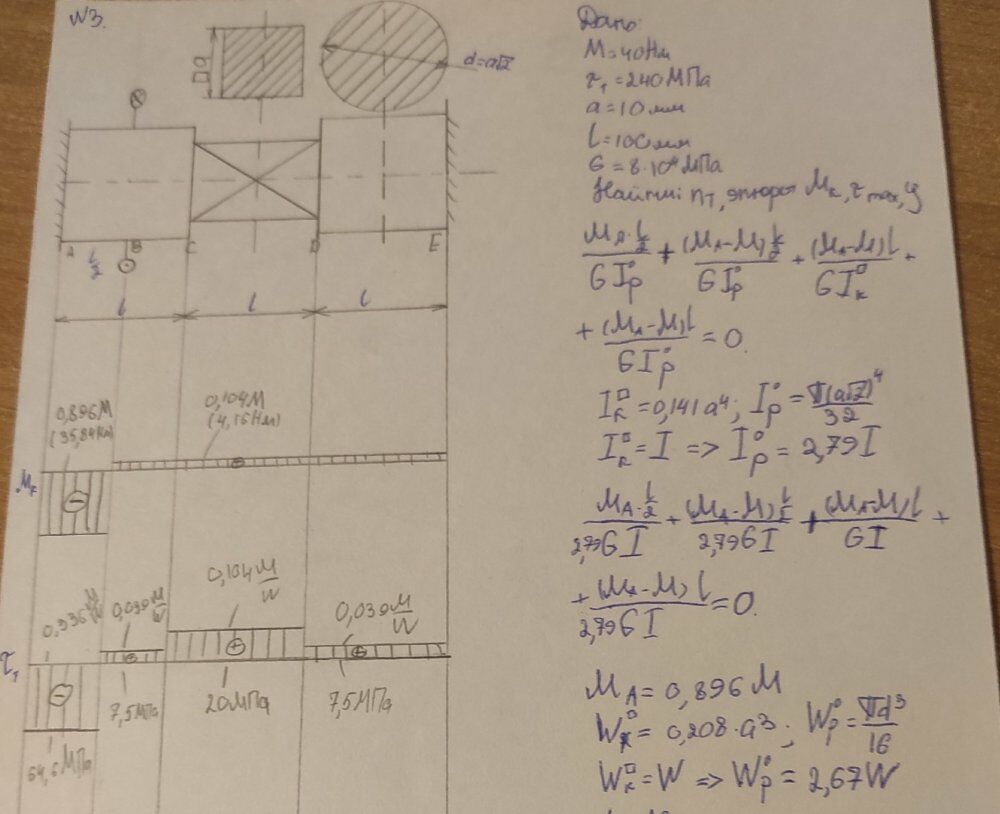 №3.
□a
d=a√2
A B C D E
l/2
l l l
0,896M
(35,84Нм)
0,104M
(4,16Нм)
Mк
0,336 M/W
0,039 M/W
0,104 M/W
0,039 M/W
τ₁
7,5МПа
20МПа
7,5МПа
64,6МПа
Дано:
M=40Нм
τт=240МПа
a=10мм
l=100мм
G=8·10⁴МПа
Найти: nт, эпюры Mк, τmax, φ
MA·l/2 / GIp° + (MA-M)l/2 / GIp° + (MA-M)l / GIк□ +
+ (MA-M)l / GIp° = 0
Iк□=0,141a⁴; Ip°=π(a√2)⁴/32
Iк□=I => Ip°=2,79I
MA·l/2 / 2,79GI + (MA-M)l/2 / 2,79GI + (MA-M)l / GI +
+ (MA-M)l / 2,79GI = 0.
MA=0,896M
Wк□=0,208·a³; Wp°=πd³/16
Wк□=W => Wp°=2,67W